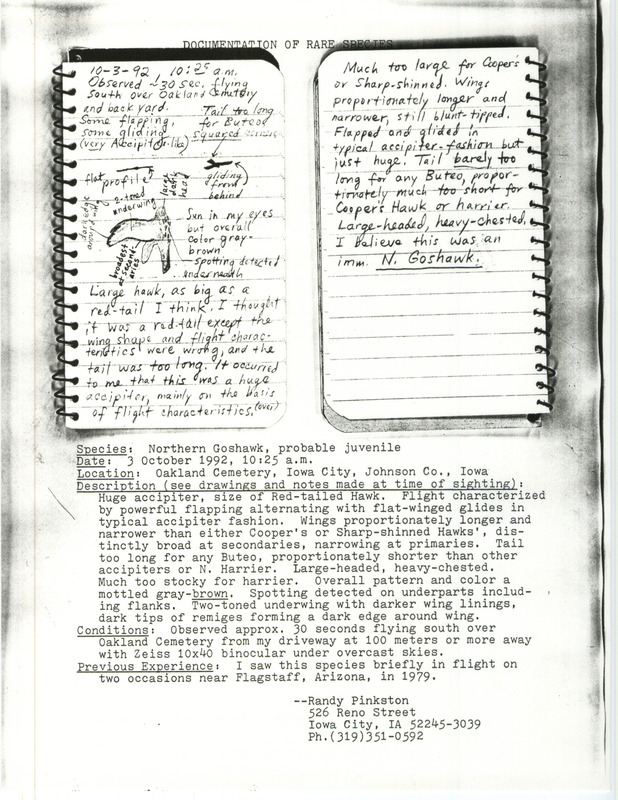 DOCUMENTATION OF RARE SPECIES
10-3-92, 10:25 a.m.
Observed ~30 sec, flying
south over Oakland Cemetery
and back yard.
Some flapping,
some gliding
(very Accipiter-like)
Tail too long
for Buteo,
squared corners
flat profile
gliding
from
behind
2-toned
underwing
large
dark
head
dark edge
around wing
broadest
at second-
aries
Sun in my eyes
but overall
color gray-
brown
spotting detected
underneath
Large hawk, as big as a
red-tail I think. I thought
it was a red-tail except the
wing shape and flight charac-
teristics were wrong, and the
tail was too long. It occurred
to me that this was a huge
accipiter, mainly on the basis
of flight characteristics. (over)
Much too large for Cooper's
or Sharp-shinned. Wings
proportionately longer and
narrower, still blunt-tipped.
Flapped and glided in
typical accipiter-fashion but
just huge. Tail barely too
long for any Buteo, propor-
tionately much too short for
Cooper's Hawk or harrier.
Large-headed, heavy-chested.
I believe this was an
imm. N. Goshawk.
Species: Northern Goshawk, probable juvenile
Date: 3 October 1992, 10:25 a.m.
Location: Oakland Cemetery, Iowa City, Johnson Co., Iowa
Description (see drawings and notes made at time of sighting):
Huge accipiter, size of Red-tailed Hawk. Flight characterized
by powerful flapping alternating with flat-winged glides in
typical accipiter fashion. Wings proportionately longer and
narrower than either Cooper's or Sharp-shinned Hawks', dis-
tinctly broad at secondaries, narrowing at primaries. Tail
too long for any Buteo, proportionately shorter than other
accipiters or N. Harrier. Large-headed, heavy-chested.
Much too stocky for harrier. Overall pattern and color a
mottled gray-brown. Spotting detected on underparts includ-
ing flanks. Two-toned underwing with darker wing linings,
dark tips of remiges forming a dark edge around wing.
Conditions: Observed approx. 30 seconds flying south over
Oakland Cemetery from my driveway at 100 meters or more away
with Zeiss 10x40 binocular under overcast skies.
Previous Experience: I saw this species briefly in flight on
two occasions near Flagstaff, Arizona, in 1979.
--Randy Pinkston
526 Reno Street
Iowa City, IA 52245-3039
Ph.(319)351-0592